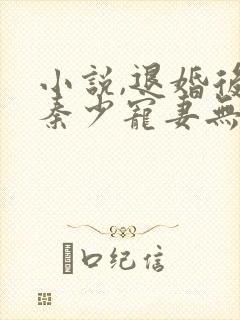 小説,退婚後
秦少寵妻無
口纪信